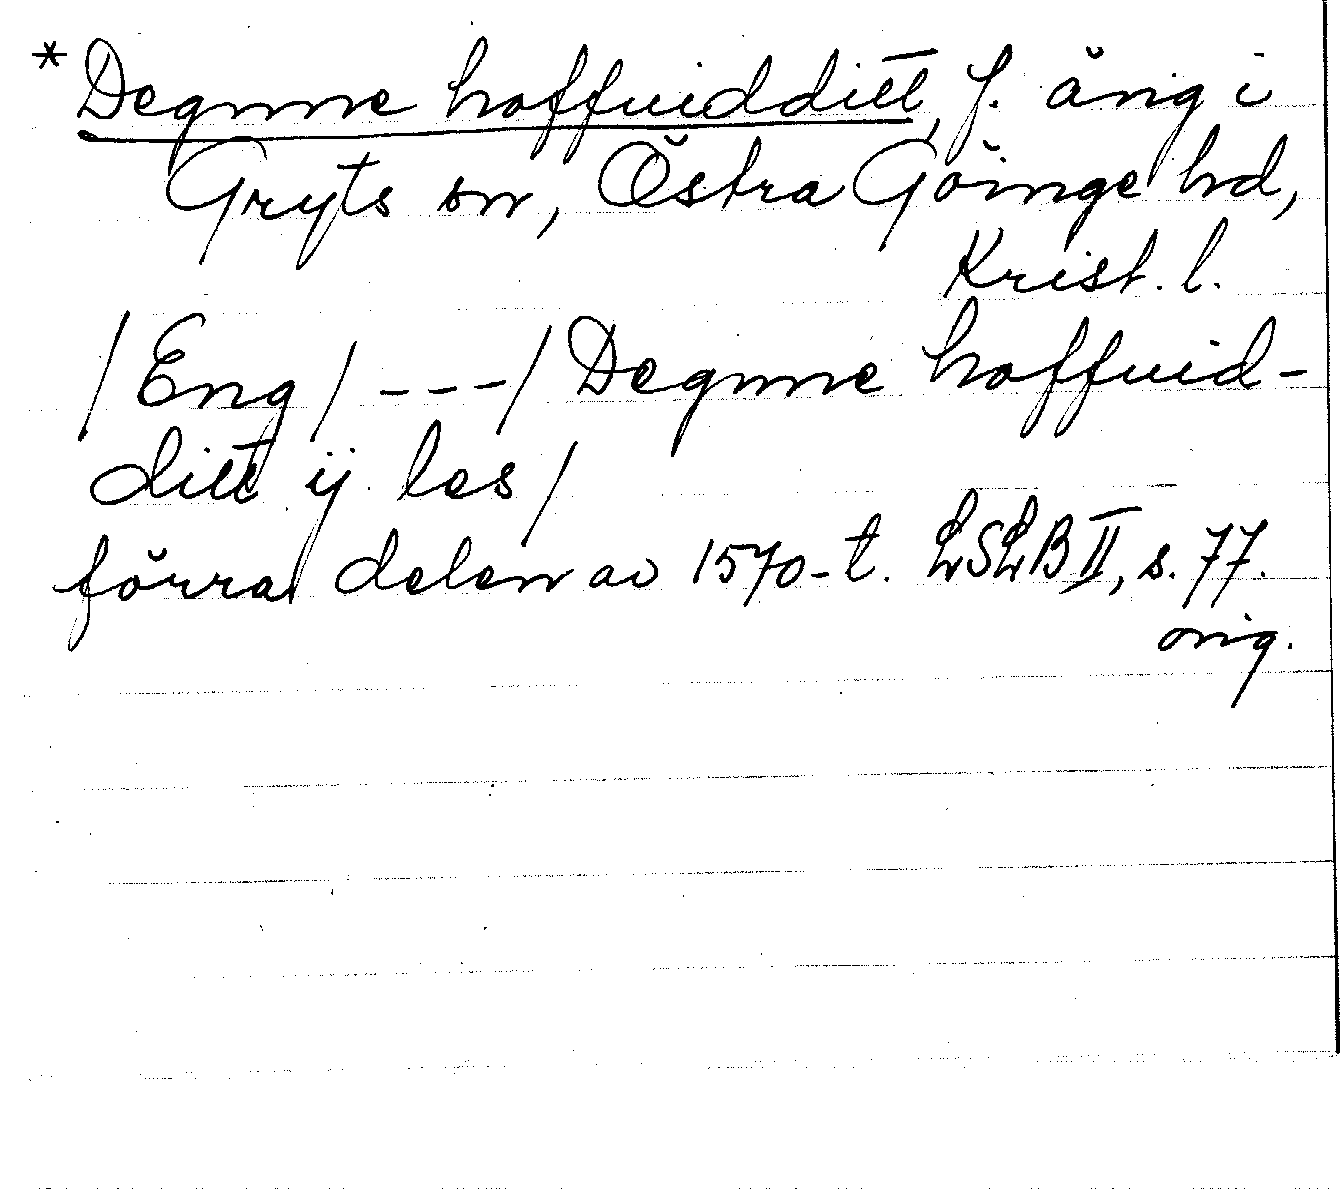 * Degnne hoffuidditt, f. äng i
Gryts sn, Östra Göinge hd,
Krist. l.
/Eng/ ---/ Degnne hoffuid-
ditt ij les/
förra delen av 1570-t. LSLB II, s. 77.
orig.